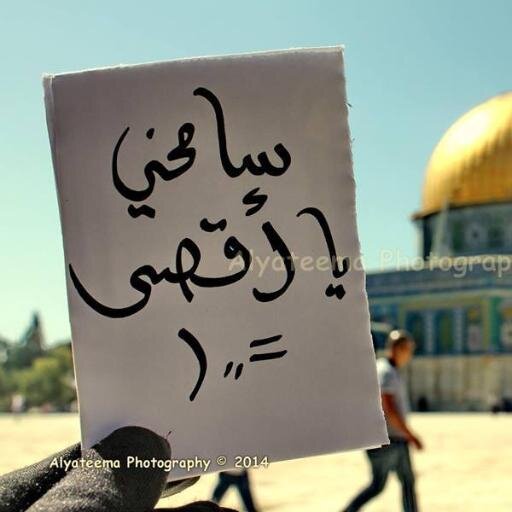 سامحني
يا أقصى
=,,(
Alyateema Photography
Alyateema Photography © 2014